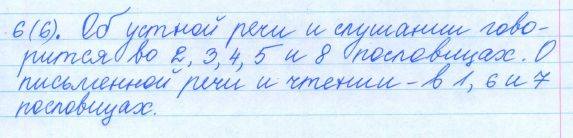 6(6). Об устной речи и слушании гово-
рится во 2, 3, 4, 5 и 8 пословицах. О
письменной речи и чтении - в 1, 6 и 7
пословицах.